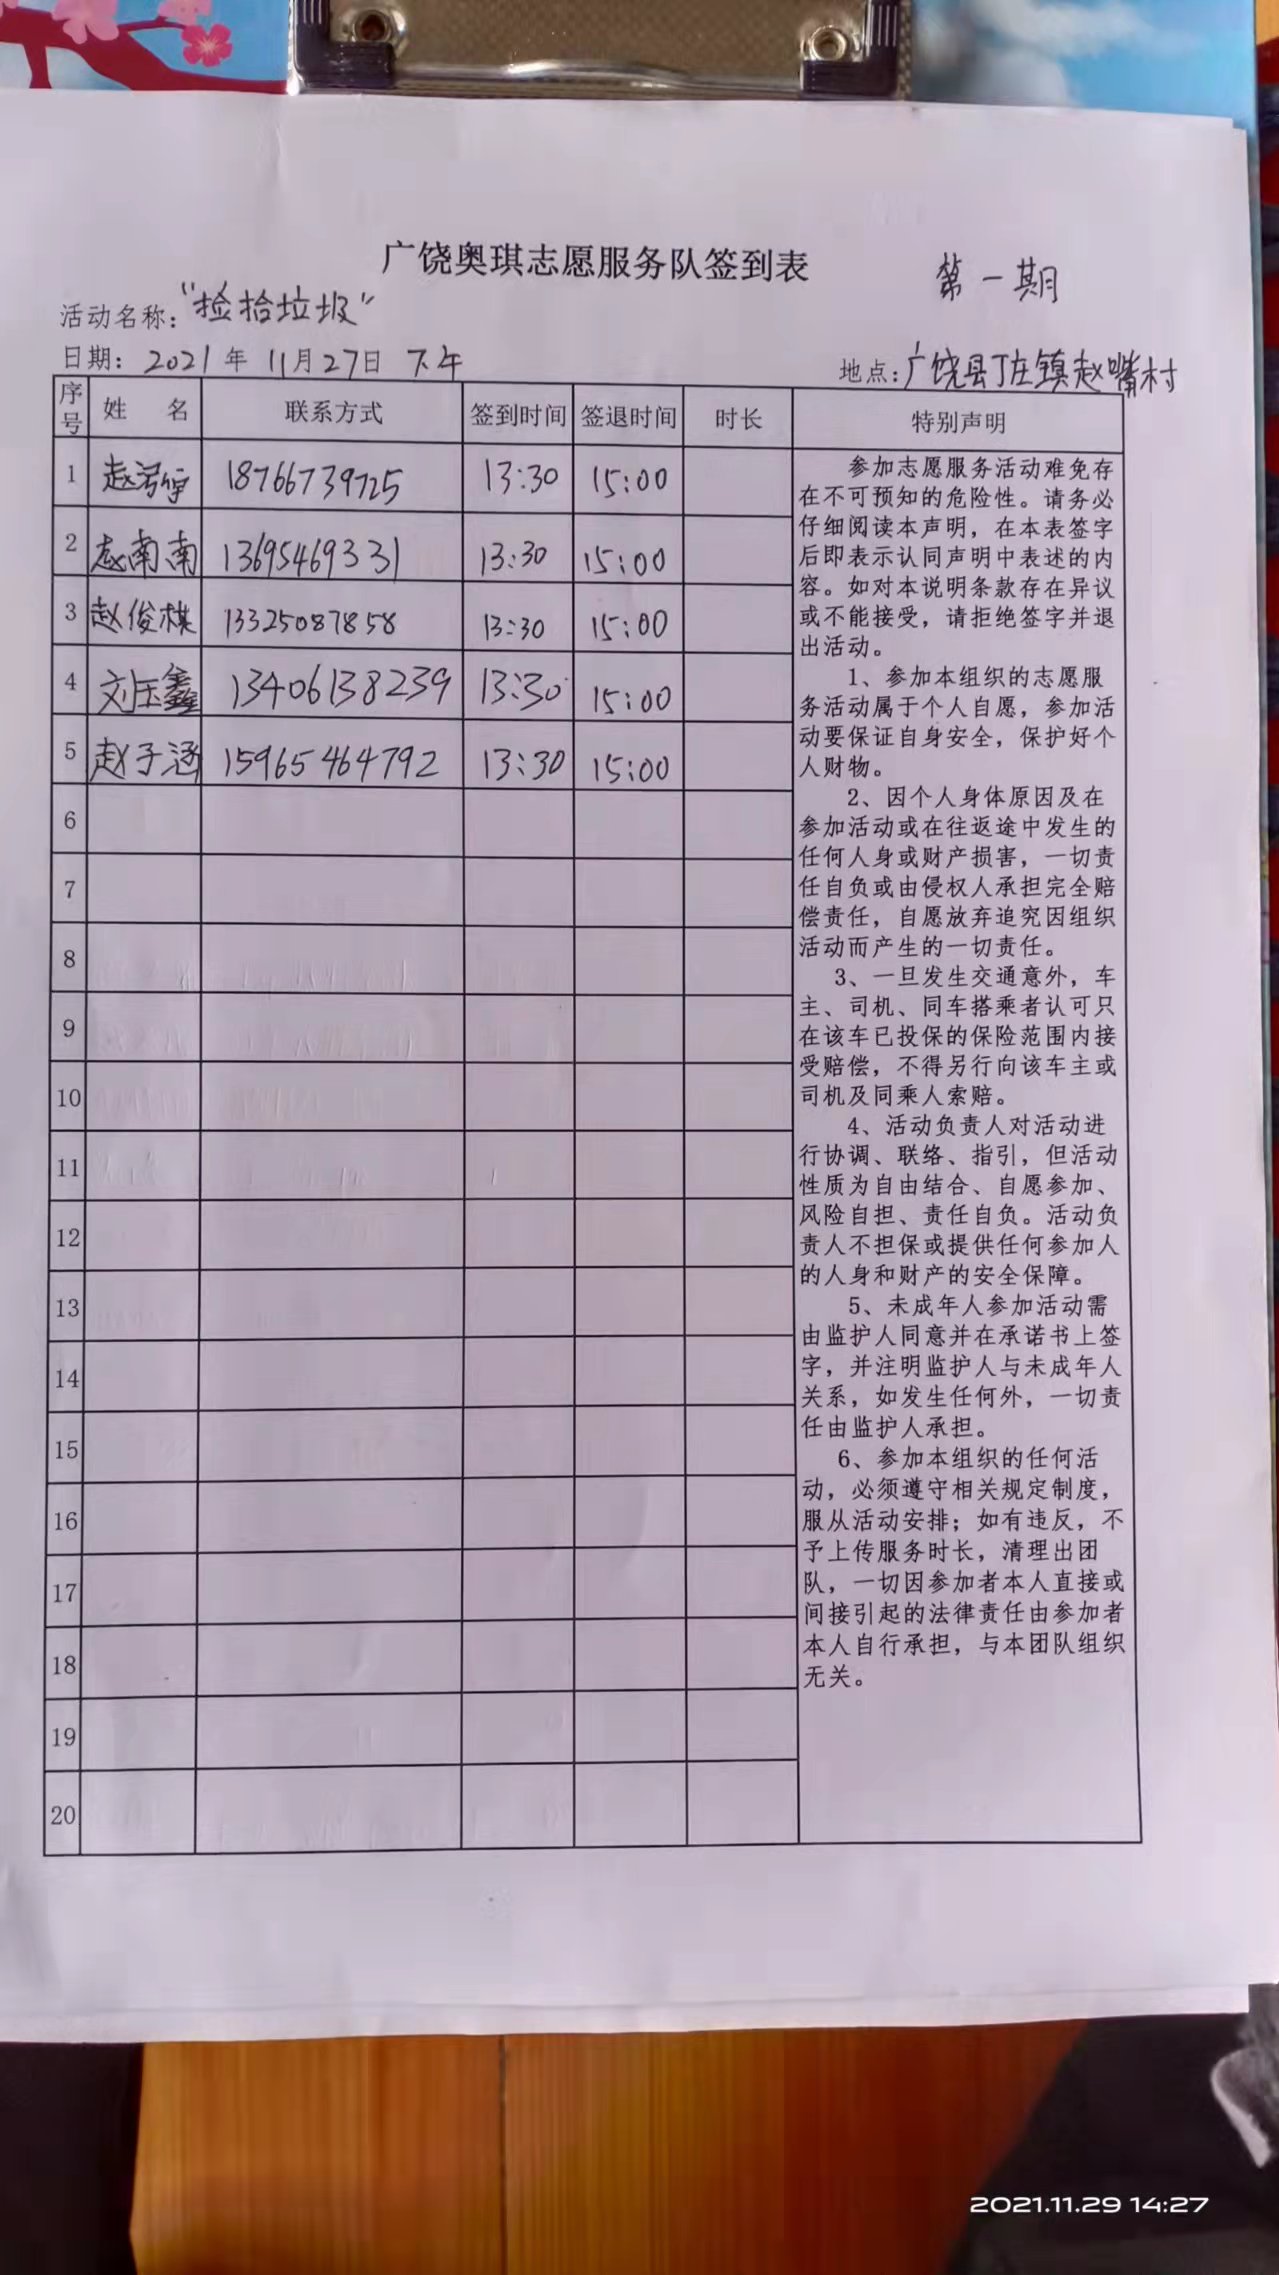 广饶奥琪志愿服务队签到表
第一期
活动名称："捡拾垃圾"
日期：2021年11月27日 下午
地点：广饶县丁庄镇赵嘴村
序号 姓 名 联系方式 签到时间 签退时间 时长 特别声明
1 赵 18766739725 13:30 15:00
2 赵南南 13695469331 13:30 15:00
3 赵俊棋 13325087858 13:30 15:00
4 刘玉鑫 13406138239 13:30 15:00
5 赵子涵 15965464792 13:30 15:00
6
7
8
9
10
11
12
13
14
15
16
17
18
19
20
参加志愿服务活动难免存
在不可预知的危险性。请务必
仔细阅读本声明，在本表签字
后即表示认同声明中表述的内
容。如对本说明条款存在异议
或不能接受，请拒绝签字并退
出活动。
1、参加本组织的志愿服
务活动属于个人自愿，参加活
动要保证自身安全，保护好个
人财物。
2、因个人身体原因及在
参加活动或在往返途中发生的
任何人身或财产损害，一切责
任自负或由侵权人承担完全赔
偿责任，自愿放弃追究因组织
活动而产生的一切责任。
3、一旦发生交通意外，车
主、司机、同车搭乘者认可只
在该车已投保的保险范围内接
受赔偿，不得另行向该车主或
司机及同乘人索赔。
4、活动负责人对活动进
行协调、联络、指引，但活动
性质为自由结合、自愿参加、
风险自担、责任自负。活动负
责人不担保或提供任何参加人
的人身和财产的安全保障。
5、未成年人参加活动需
由监护人同意并在承诺书上签
字，并注明监护人与未成年人
关系，如发生任何外，一切责
任由监护人承担。
6、参加本组织的任何活
动，必须遵守相关规定制度，
服从活动安排；如有违反，不
予上传服务时长，清理出团
队，一切因参加者本人直接或
间接引起的法律责任由参加者
本人自行承担，与本团队组织
无关。
2021.11.29 14:27